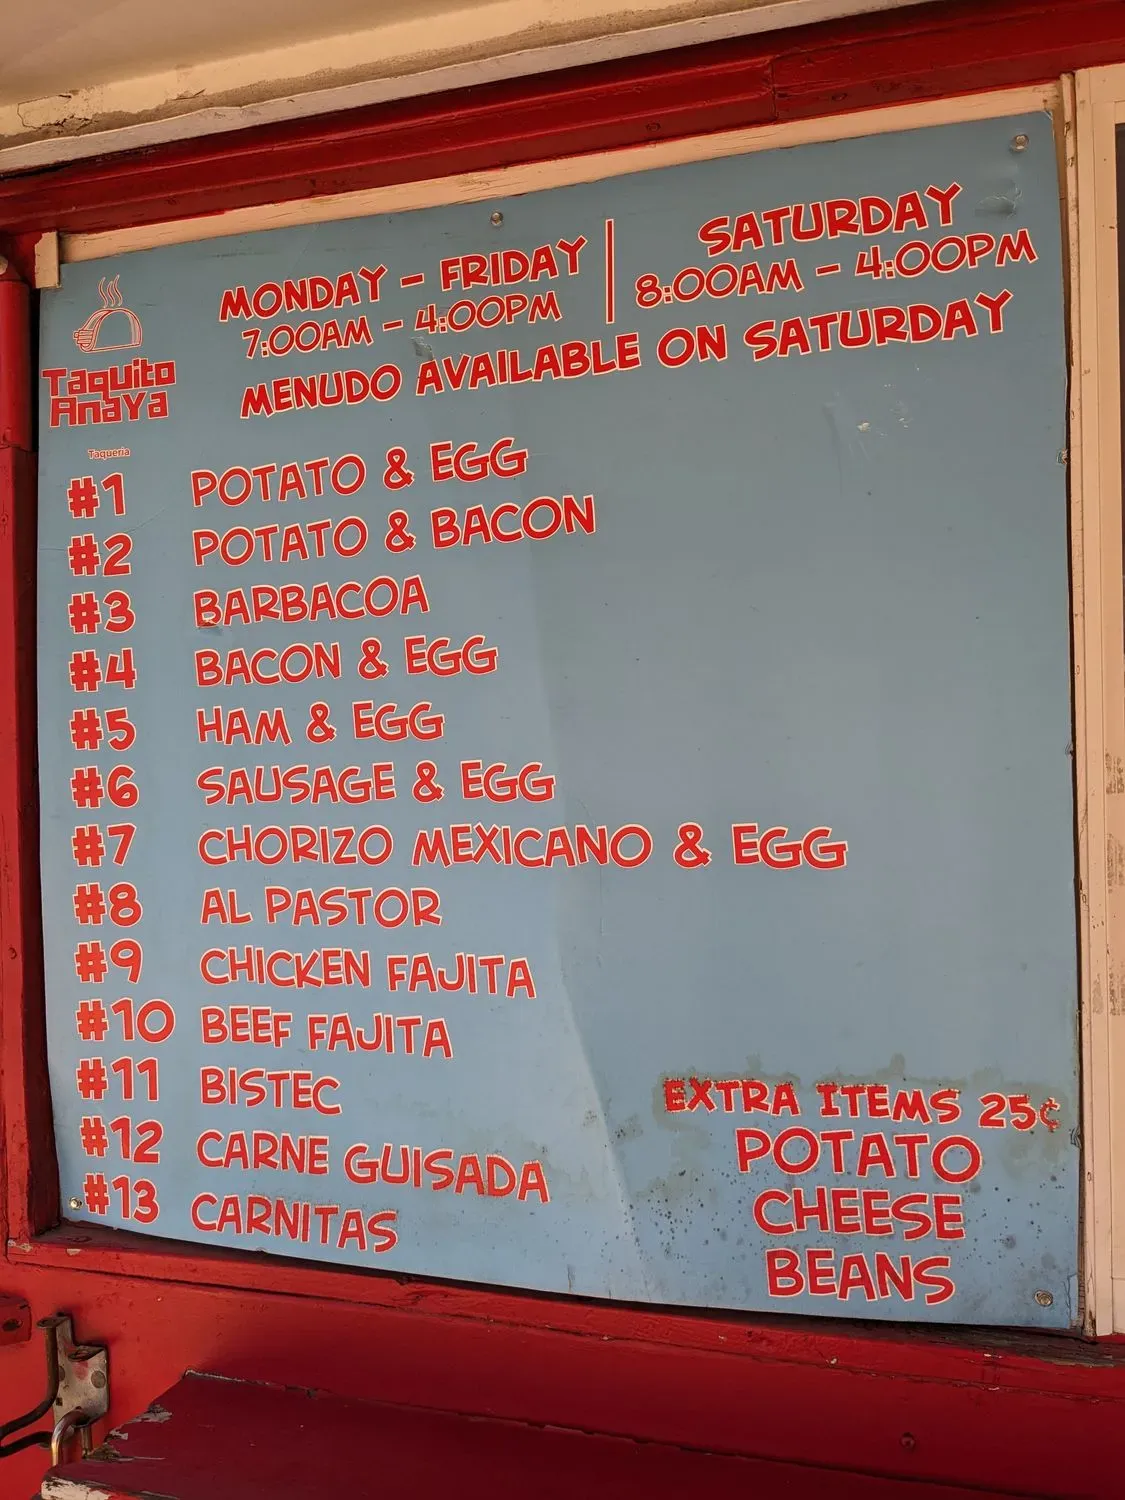 MONDAY - FRIDAY
7:00AM - 4:00PM
SATURDAY
8:00AM - 4:00PM
MENUDO AVAILABLE ON SATURDAY
Taquito
Anaya
Taqueria
#1 POTATO & EGG
#2 POTATO & BACON
#3 BARBACOA
#4 BACON & EGG
#5 HAM & EGG
#6 SAUSAGE & EGG
#7 CHORIZO MEXICANO & EGG
#8 AL PASTOR
#9 CHICKEN FAJITA
#10 BEEF FAJITA
#11 BISTEC
#12 CARNE GUISADA
#13 CARNITAS
EXTRA ITEMS 25¢
POTATO
CHEESE
BEANS